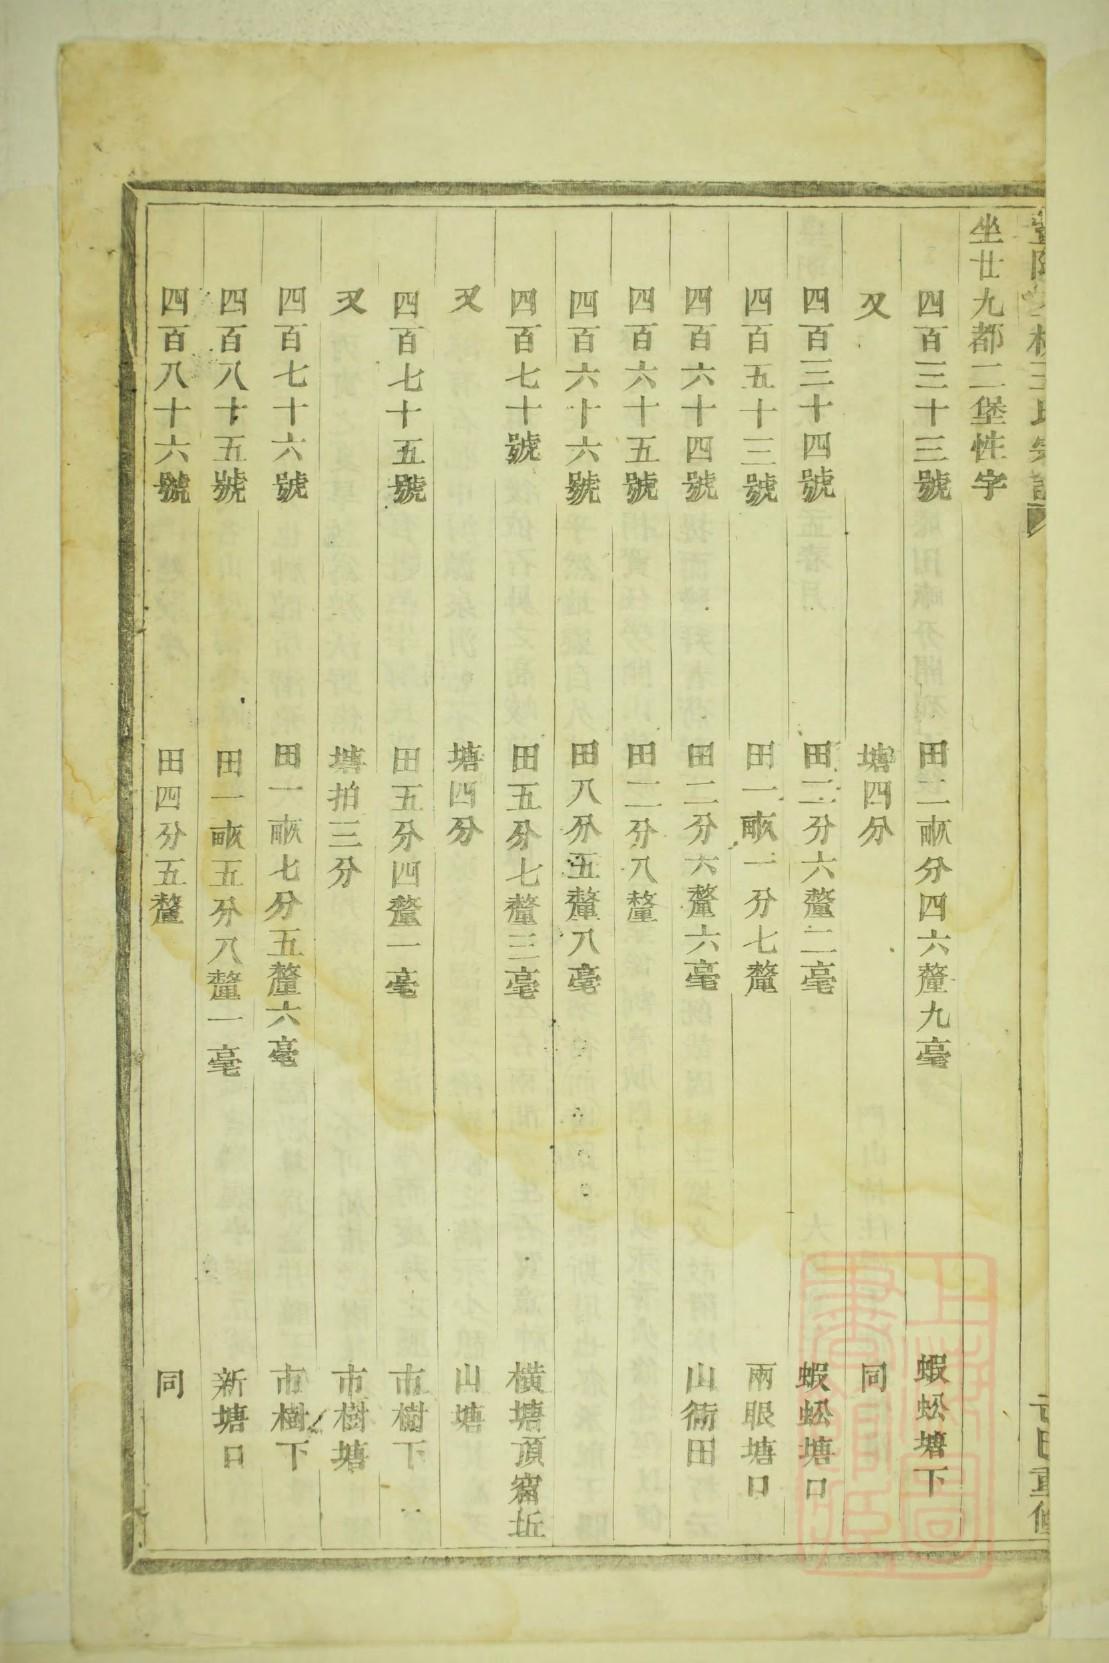 坐廿九都二堡性字
四百三十三號 田二畝分四六釐九毫 蝦蚣塘下
又 塘四分 同
四百三十四號 田二分六釐二毫 蝦蚣塘口
四百五十三號 田一畝一分七釐 兩眼塘口
四百六十四號 田二分六釐六毫 山衕田
四百六十五號 田二分八釐
四百六十六號 田八分五釐八毫
四百七十號 田五分七釐三毫 橫塘頂窰坵
又 塘四分 山塘
四百七十五號 田五分四釐一毫 市樹下
又 塘拍三分 市樹塘
四百七十六號 田一畝七分五釐六毫 市樹下
四百八十五號 田一畝五分八釐一毫 新塘口
四百八十六號 田四分五釐 同
上海圖書館藏